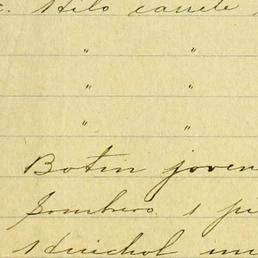 . Hilo carrete
" "
" "
" "
Botin joven
Sombrero. 1
Huichol